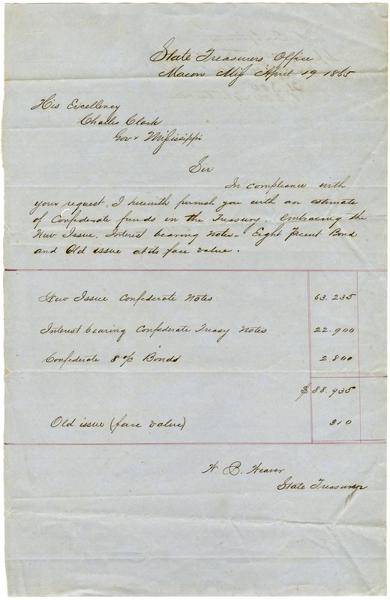 State Treasurers Office
Macon Miſ April 19 1865
His Excellency
Charles Clark
Gov. Miſsissippi
Sir
In compliance with
your request, I herewith furnish you with an estimate
of Confederate funds in the Treasury. Embracing the
New Issue, Interest bearing Notes. Eight Pcent Bond
and Old issue at its face value.
New Issue Confederate Notes 63.235
Interest bearing Confederate Treasy Notes 22.900
Confederate 8 o/o Bonds 2.800
$ 88.935
Old issue (face value) 310
State Treasurer